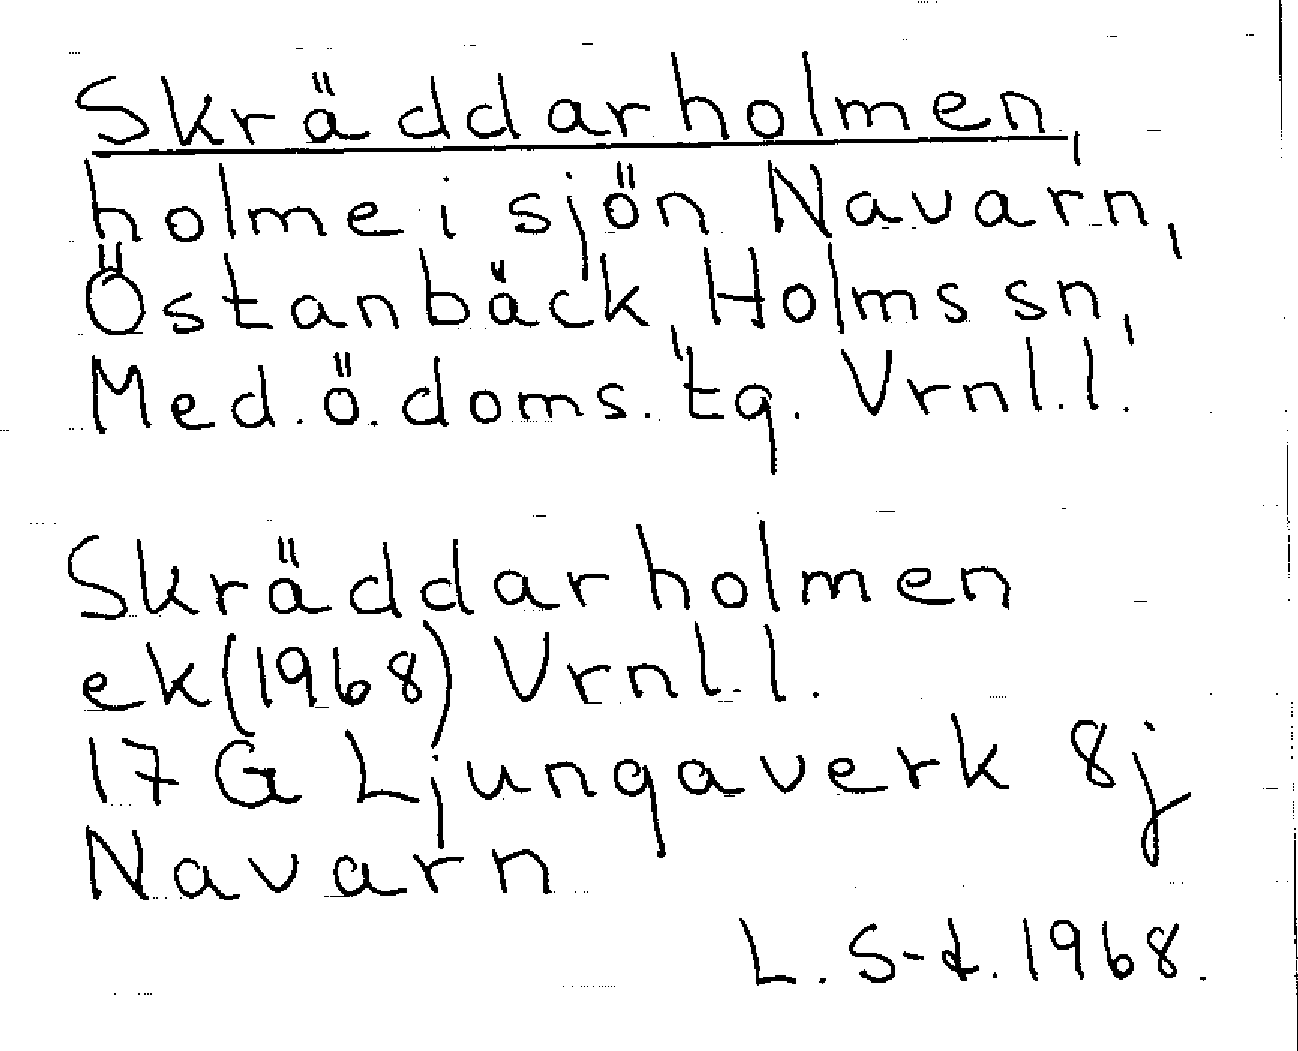 Skräddarholmen,
holme i sjön Navarn,
Östanbäck, Holms sn,
Med.ö.doms.tg. Vrnl.l.
Skräddarholmen
ek(1968) Vrnl.l.
17 G Ljungaverk 8j
Navarn
L. S-t. 1968.